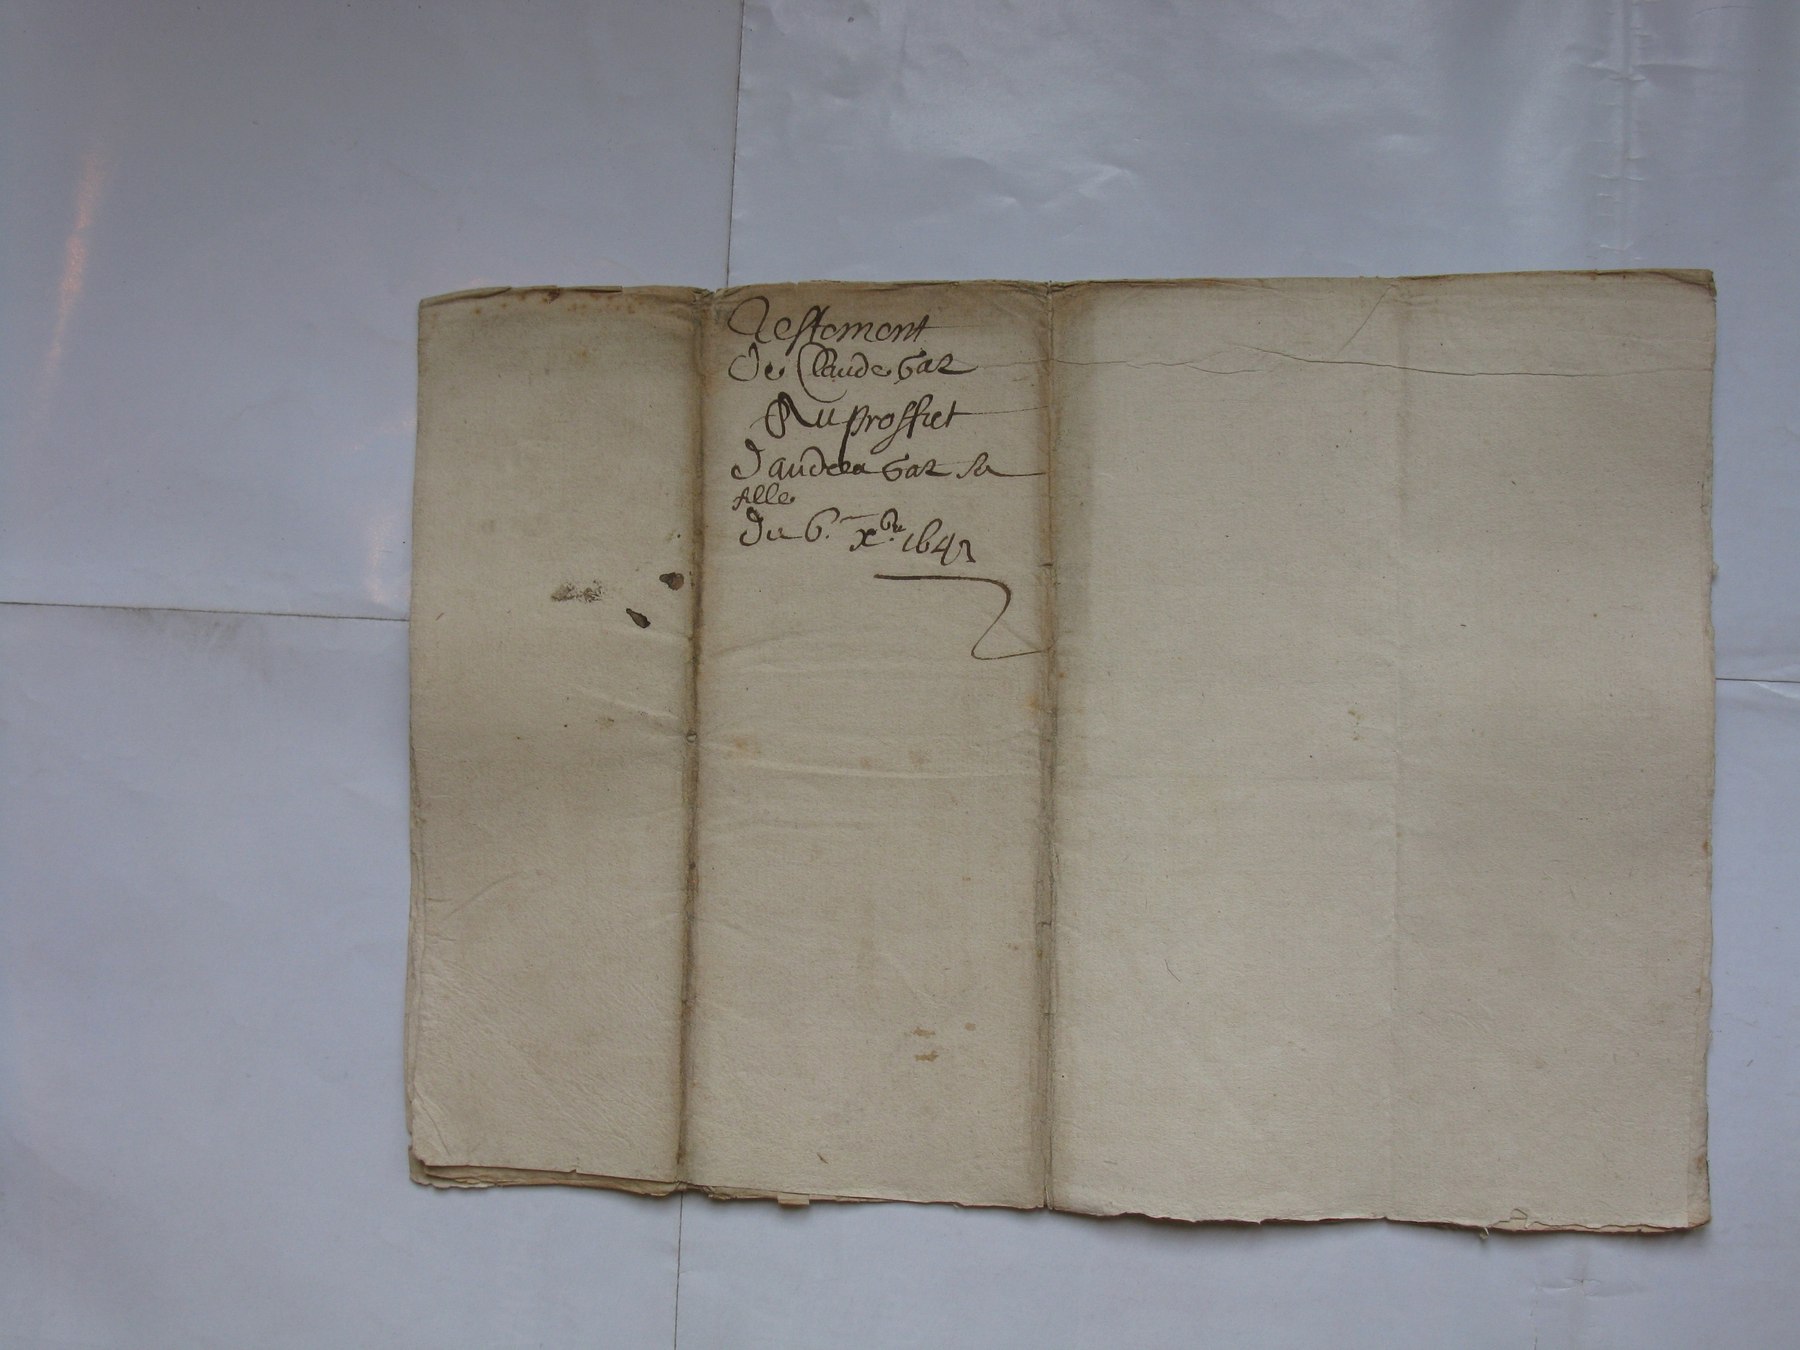 Testement
de Claude Gaz
Au proffiet
d'audea Gaz sa
fille
du 6. xbre 1647